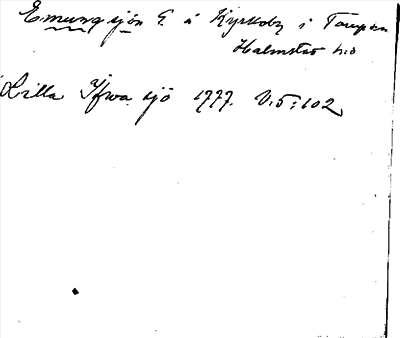 Emungsjön S. å Kyrkoby i Torup sn
Halmstad h:d
Lilla Yfwa sjö 1777. V:5:102